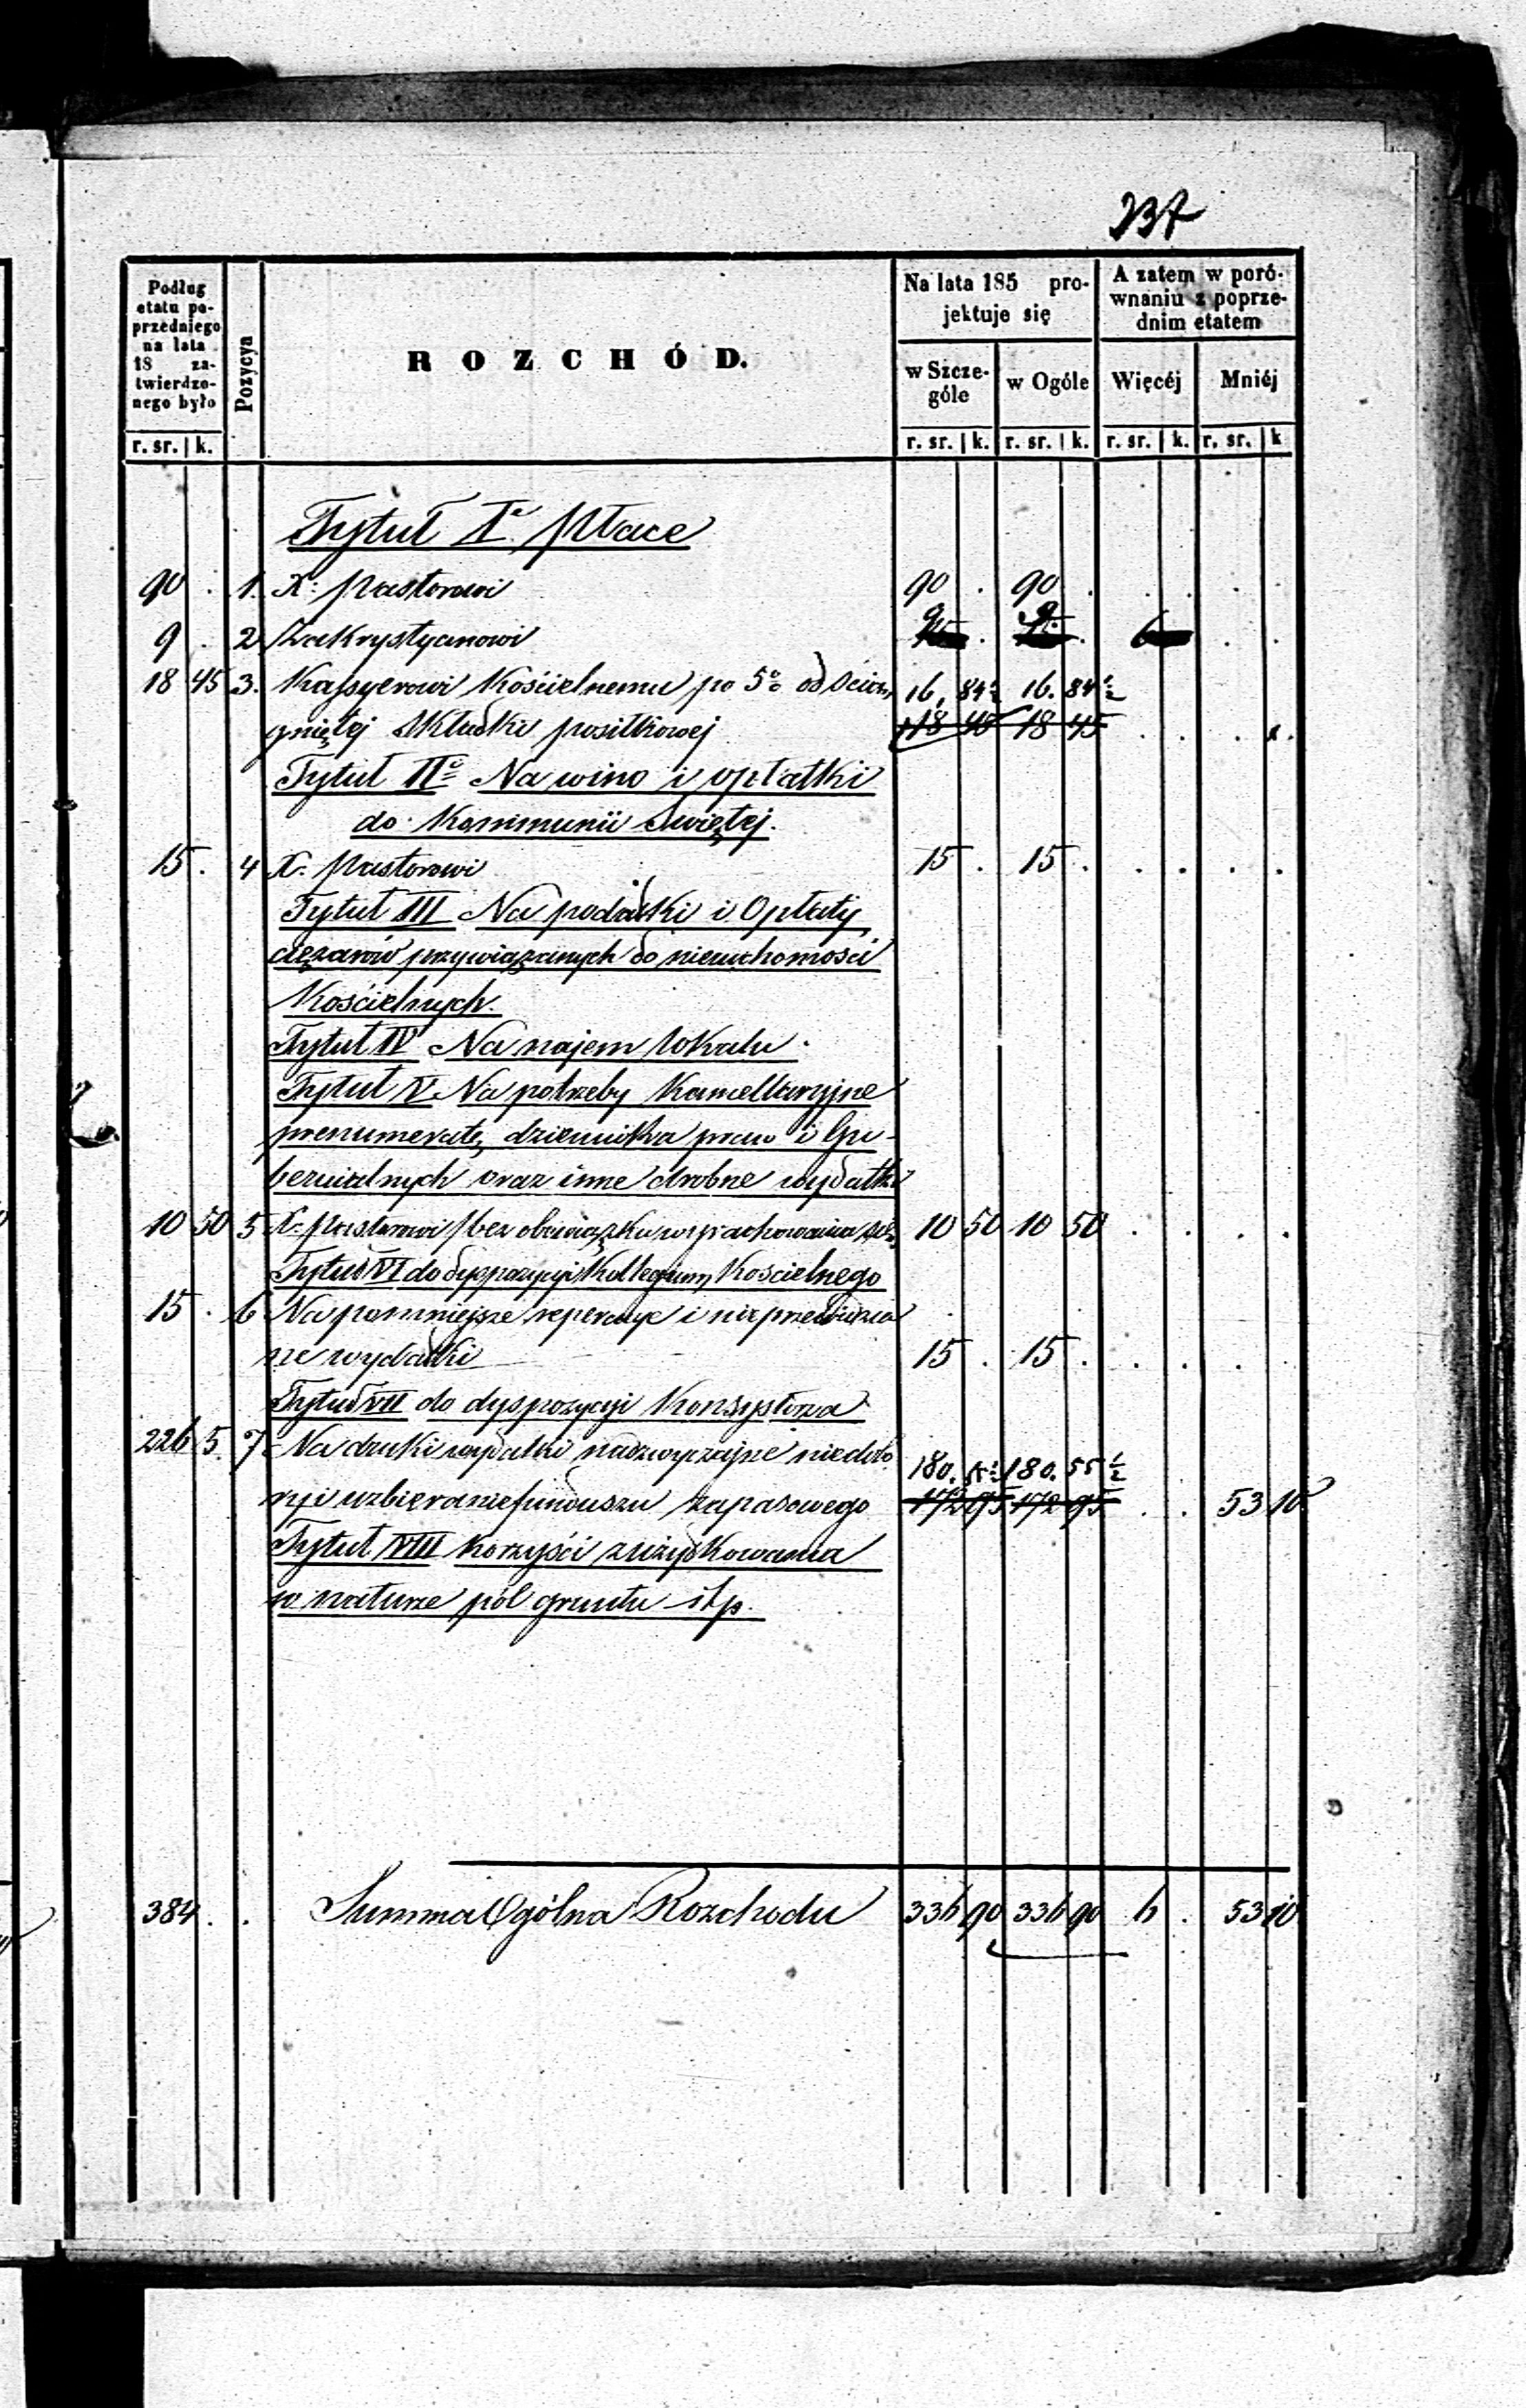 237
Podług etatu poprzedniego na lata 18 zatwierdzonego było
Pozycya
ROZCHÓD.
Na lata 185 projektuje się
A zatem w porównaniu z poprzednim etatem
w Szczególe
w Ogóle
Więcéj
Mniéj
r. sr. k. r. sr. k. r. sr. k. r. sr. k. r. sr. k
Tytuł I. Płace
90 . 1. X. Pastorowi 90 . 90 . . . . .
9 . 2 Zakrystyanowi 9 . 9 . . .
18 45 3. Kassyerowi Kościelnemu po 5% od ścią- 16. 84½ 16. 84½
gniętej składki posiłkowej 18 45 18 45 . . . .
Tytuł II Na wino i opłatki
do Kommunii Świętej.
15 . 4 X. Pastorowi 15 . 15 . . . . .
Tytuł III Na podatki i Opłaty
ciężarów przywiązanych do nieruchomości
Kościelnych.
Tytuł IV Na najem lokalu.
Tytuł V. Na potrzeby Kancellaryjne
prenumeratę, dziennika praw i Gu-
bernialnych oraz inne drobne wydatki
10 50 5 X. Pastorowi /bez obowiązku wyrachowania się 10 50 10 50 . . . .
Tytuł VI do dyspozycyi Kollegium Kościelnego
15 . 6 Na pomniejsze reperacye i nieprzewidzia
ne wydatki 15 . 15 . . . . .
Tytuł VII do dyspozycyi Konsystorza
226 5. 7 Na druki wydatki nadzwyczajne niedobo 180. 180. 55½
ry i uzbieranie funduszu zapasowego 172 95 172 95 . . 53 10
Tytuł VIII Korzyści z użytkowania
w naturze pól gruntu itp.
384 . . Summa Ogólna Rozchodu 336 90 336 90 6 . 53 10